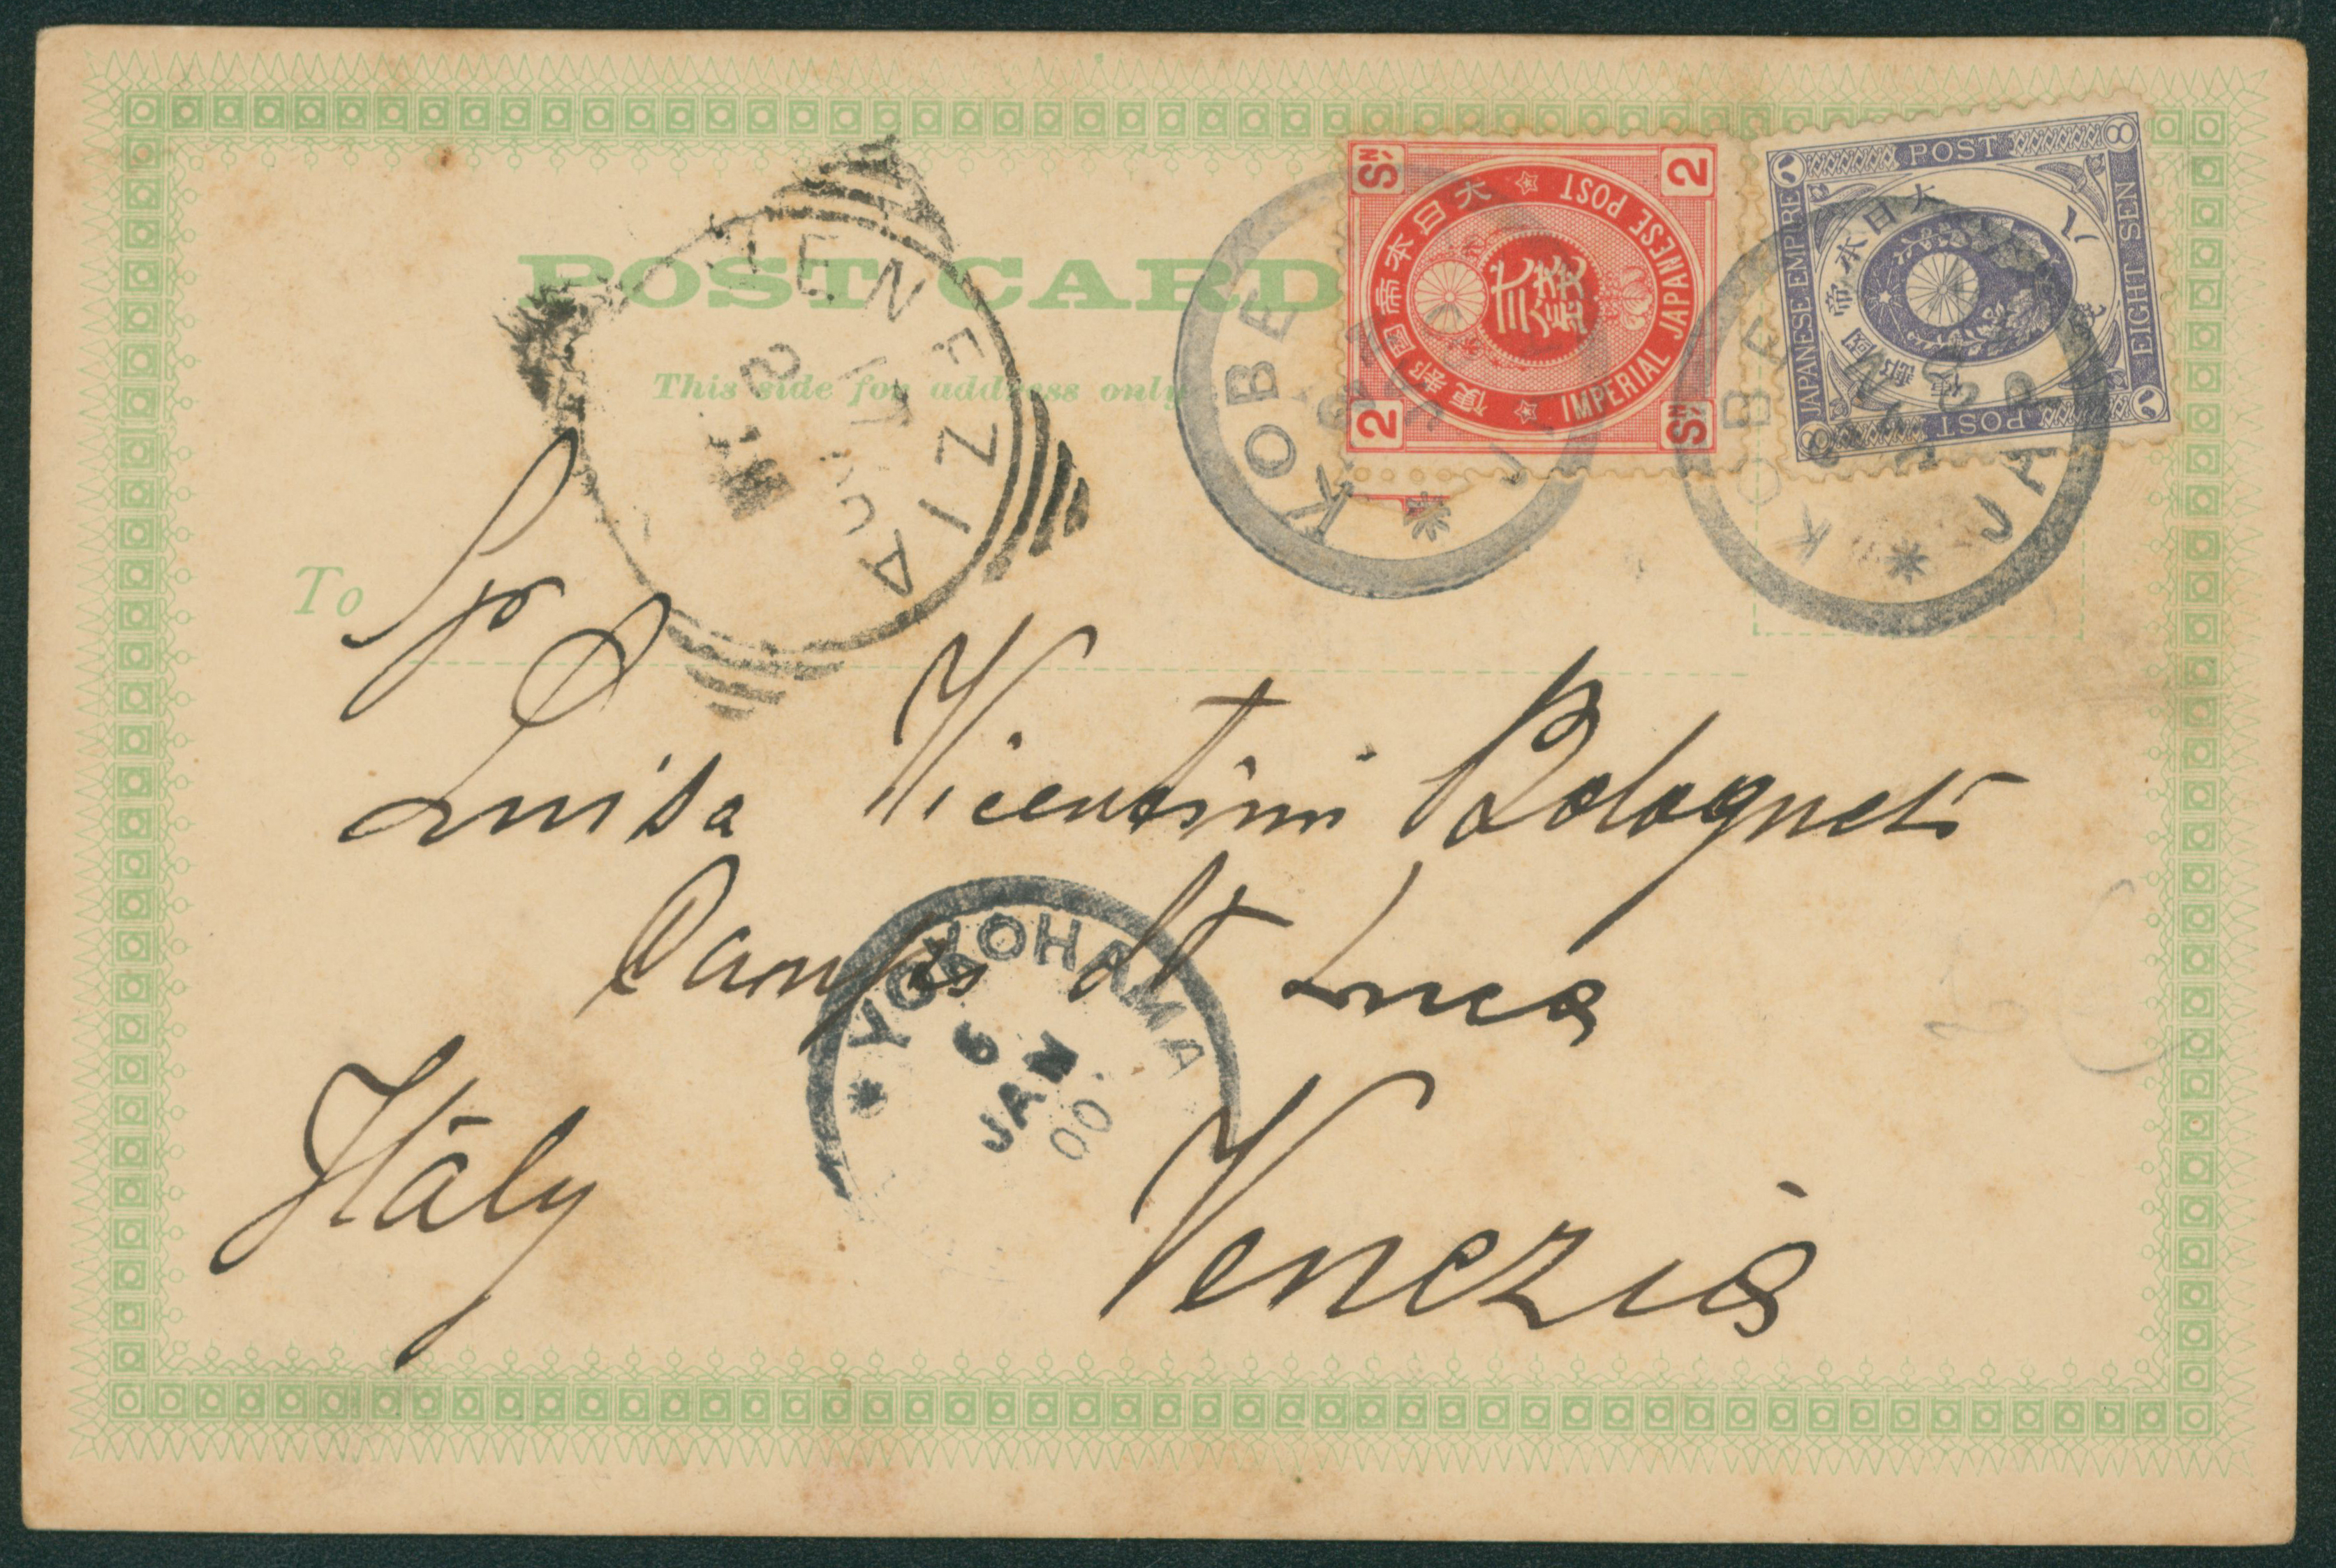 POST CARD
This side for address only
VENEZIA
KOBE
2 Sn
大日本帝国郵便
IMPERIAL JAPANESE POST
弐銭
2 Sn
JAPANESE EMPIRE
POST
EIGHT SEN
POST
八
8
大日本帝國郵便
KOBE
JAP
To
Luisa Vicentini Bolognesi
Campo St Luca
YOKOHAMA
6
JAN
00.
Italy
Venezia